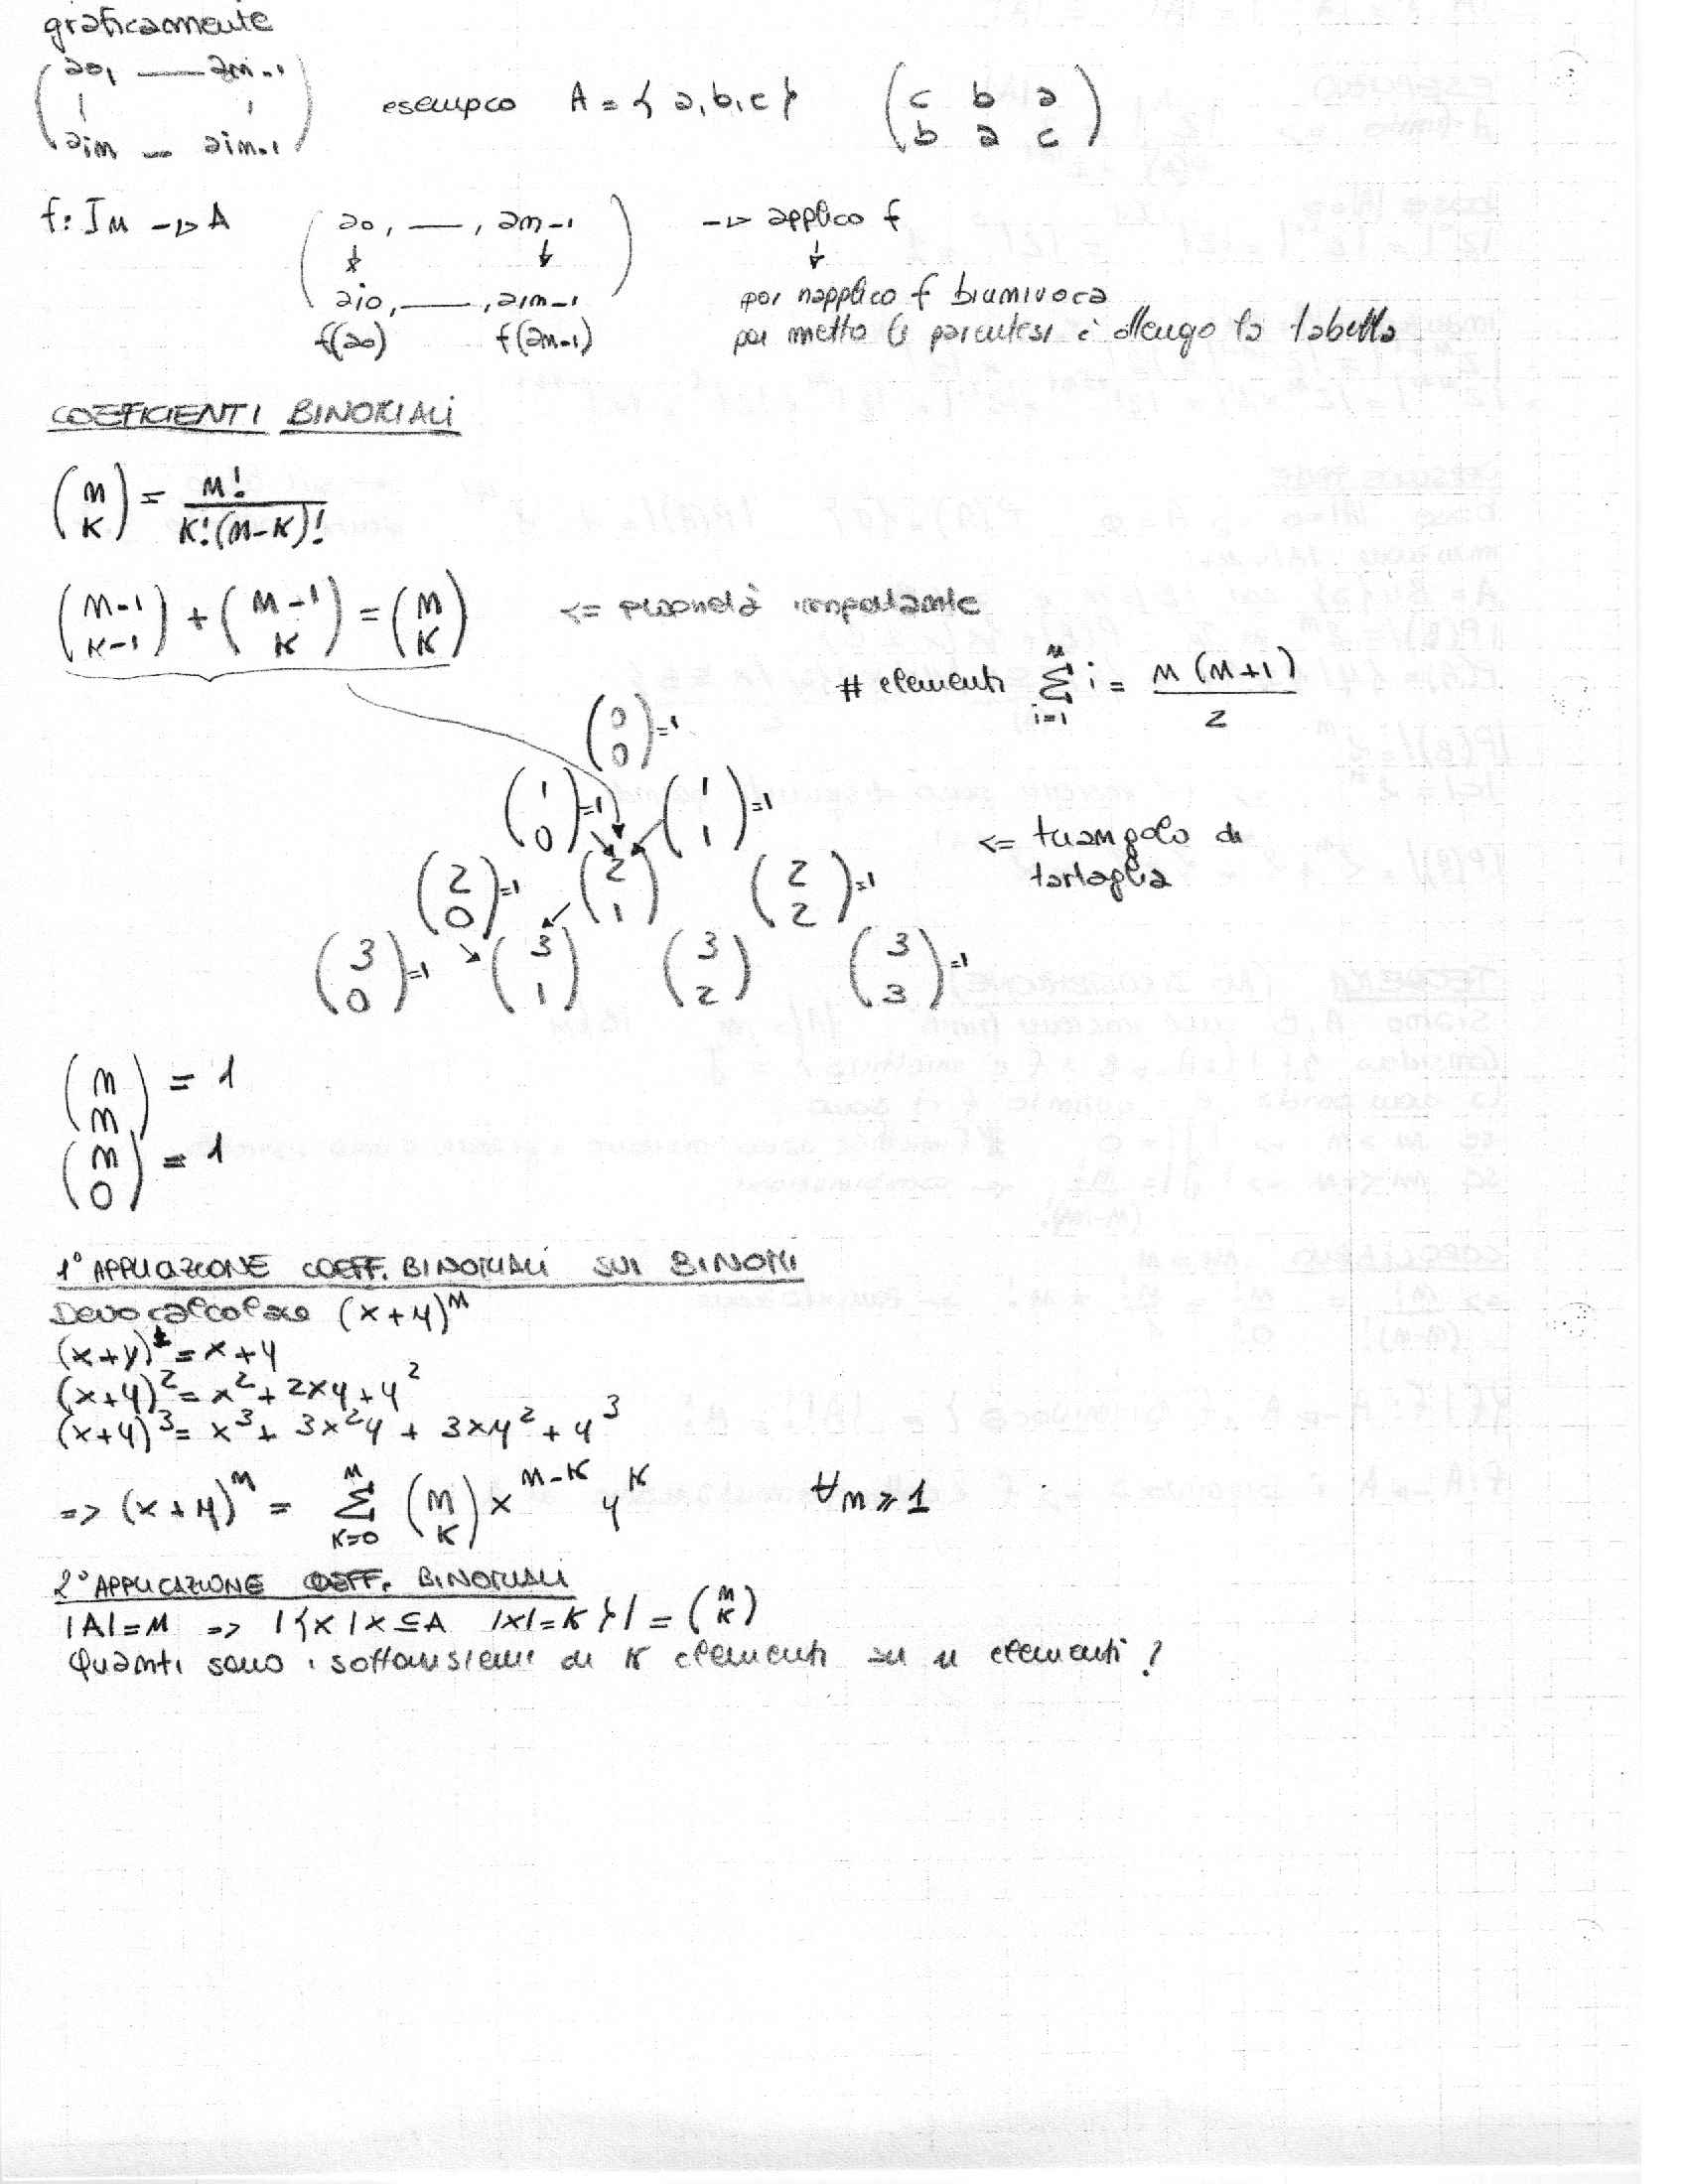 graficamente
(a0, — am-1)
(aim — aim-1)
esempio A = { a, b, c } (c b a)
(b a c)
f: In -> A (a0, —, am-1) -> applico f
(aio, —, aim-1) poi riapplico f biunivoca
f(a0) f(am-1) poi metto le parentesi e ottengo la tabella
COEFFICIENTI BINOMIALI
(n k) = n! / k!(n-k)!
(n-1 k-1) + (n-1 k) = (n k) <= proprietà importante
# elementi Σ i=1 n i = n(n+1) / 2
(0 0)=1
(1 0)=1 (1 1)=1
<= triangolo di
tartaglia
(2 0)=1 (2 1) (2 2)=1
(3 0)=1 (3 1) (3 2) (3 3)=1
(n n) = 1
(n 0) = 1
1° APPLICAZIONE COEFF. BINOMIALI SUI BINOMI
Devo calcolare (x+y)^n
(x+y)^1 = x+y
(x+y)^2 = x^2 + 2xy + y^2
(x+y)^3 = x^3 + 3x^2y + 3xy^2 + y^3
=> (x+y)^n = Σ k=0 n (n k) x^n-k y^k ∀n ≥ 1
2° APPLICAZIONE COEFF. BINOMIALI
|A|=n => |{x | x ⊆ A |x|=k}| = (n k)
Quanti sono i sottoinsiemi di k elementi su n elementi?